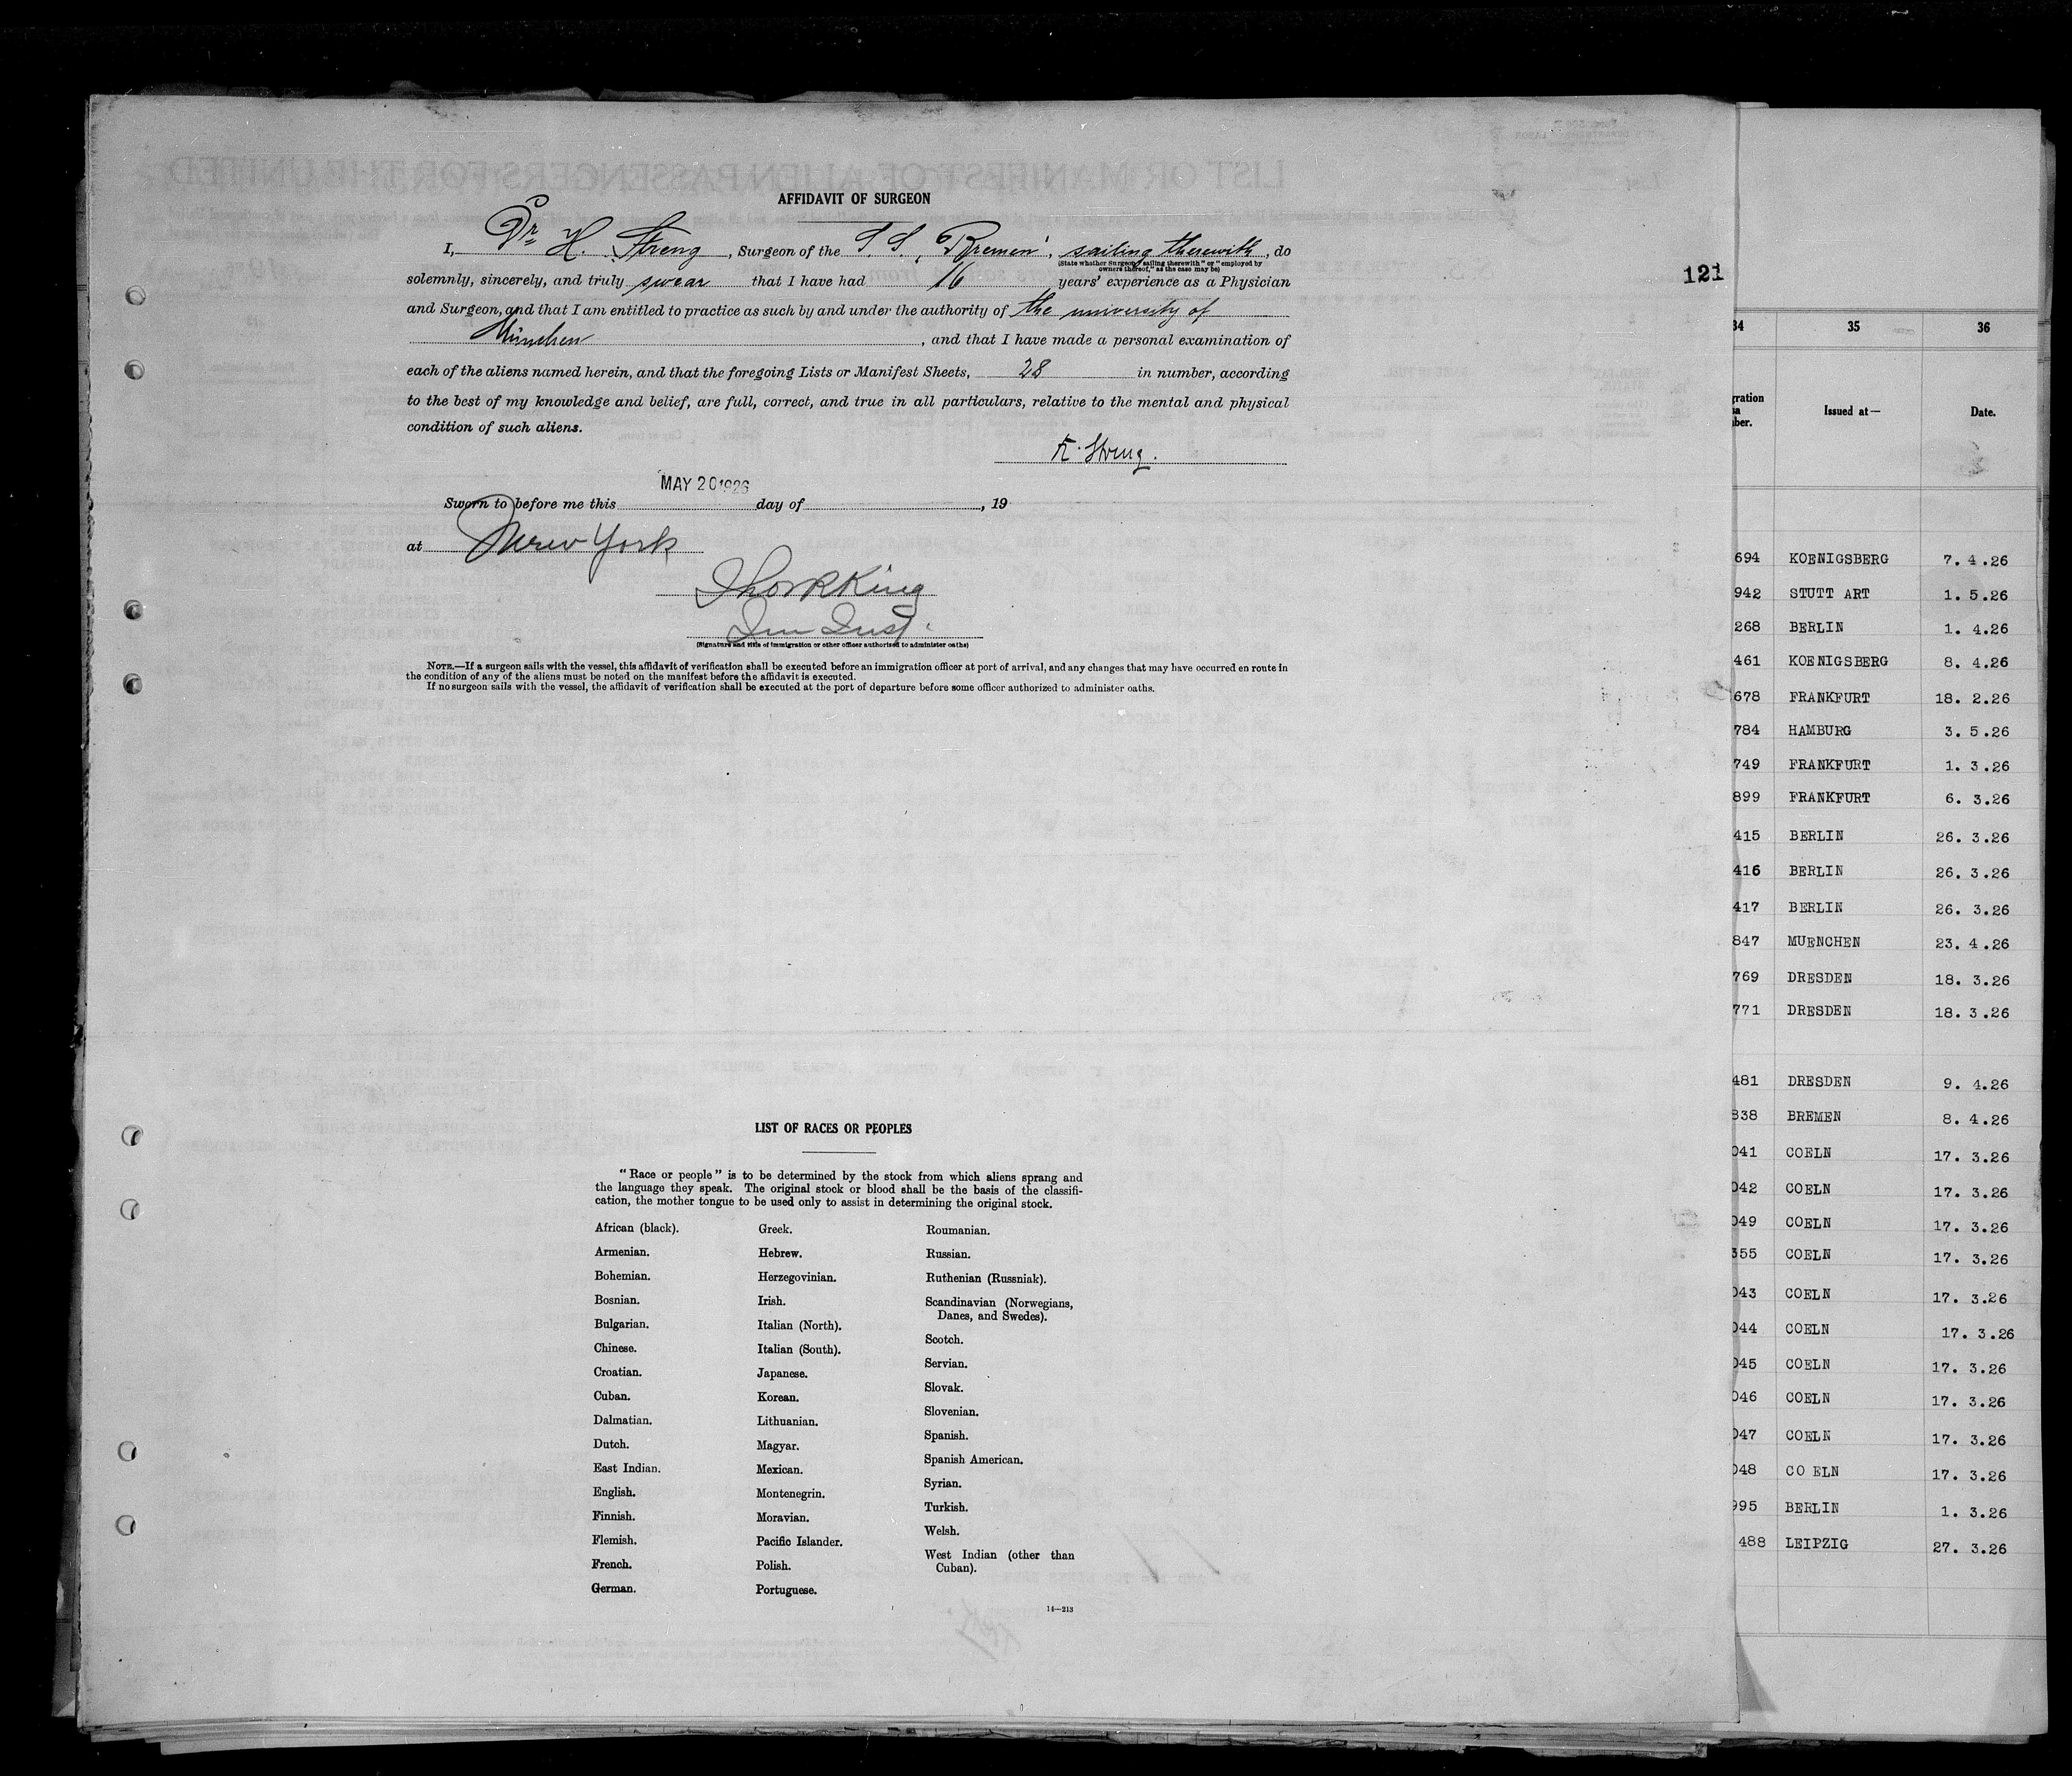 AFFIDAVIT OF SURGEON
I, Dr H. Streng, Surgeon of the S.S. "Bremen", sailing therewith, do
(State whether Surgeon "sailing therewith" or "employed by
owners thereof," as the case may be)
solemnly, sincerely, and truly swear that I have had 16 years' experience as a Physician
and Surgeon, and that I am entitled to practice as such by and under the authority of the university of
München, and that I have made a personal examination of
each of the aliens named herein, and that the foregoing Lists or Manifest Sheets, 28 in number, according
to the best of my knowledge and belief, are full, correct, and true in all particulars, relative to the mental and physical
condition of such aliens.
Streng.
MAY 20 1926
Sworn to before me this day of , 19
at New York
King
Imm Insp.
(Signature and title of immigration or other officer authorized to administer oaths)
NOTE.—If a surgeon sails with the vessel, this affidavit of verification shall be executed before an immigration officer at port of arrival, and any changes that may have occurred en route in
the condition of any of the aliens must be noted on the manifest before the affidavit is executed.
If no surgeon sails with the vessel, the affidavit of verification shall be executed at the port of departure before some officer authorized to administer oaths.
LIST OF RACES OR PEOPLES
"Race or people" is to be determined by the stock from which aliens sprang and
the language they speak. The original stock or blood shall be the basis of the classifi-
cation, the mother tongue to be used only to assist in determining the original stock.
African (black).
Armenian.
Bohemian.
Bosnian.
Bulgarian.
Chinese.
Croatian.
Cuban.
Dalmatian.
Dutch.
East Indian.
English.
Finnish.
Flemish.
French.
German.
Greek.
Hebrew.
Herzegovinian.
Irish.
Italian (North).
Italian (South).
Japanese.
Korean.
Lithuanian.
Magyar.
Mexican.
Montenegrin.
Moravian.
Pacific Islander.
Polish.
Portuguese.
Roumanian.
Russian.
Ruthenian (Russniak).
Scandinavian (Norwegians,
Danes, and Swedes).
Scotch.
Servian.
Slovak.
Slovenian.
Spanish.
Spanish American.
Syrian.
Turkish.
Welsh.
West Indian (other than
Cuban).
14—213
121
34 35 36
gration
sa
ber.
Issued at—
Date.
694 KOENIGSBERG 7. 4.26
942 STUTT ART 1. 5.26
268 BERLIN 1. 4.26
461 KOENIGSBERG 8. 4.26
678 FRANKFURT 18. 2.26
784 HAMBURG 3. 5.26
749 FRANKFURT 1. 3.26
899 FRANKFURT 6. 3.26
415 BERLIN 26. 3.26
416 BERLIN 26. 3.26
417 BERLIN 26. 3.26
847 MUENCHEN 23. 4.26
769 DRESDEN 18. 3.26
771 DRESDEN 18. 3.26
481 DRESDEN 9. 4.26
838 BREMEN 8. 4.26
041 COELN 17. 3.26
042 COELN 17. 3.26
049 COELN 17. 3.26
355 COELN 17. 3.26
043 COELN 17. 3.26
044 COELN 17. 3.26
045 COELN 17. 3.26
046 COELN 17. 3.26
047 COELN 17. 3.26
048 CO ELN 17. 3.26
995 BERLIN 1. 3.26
488 LEIPZIG 27. 3.26